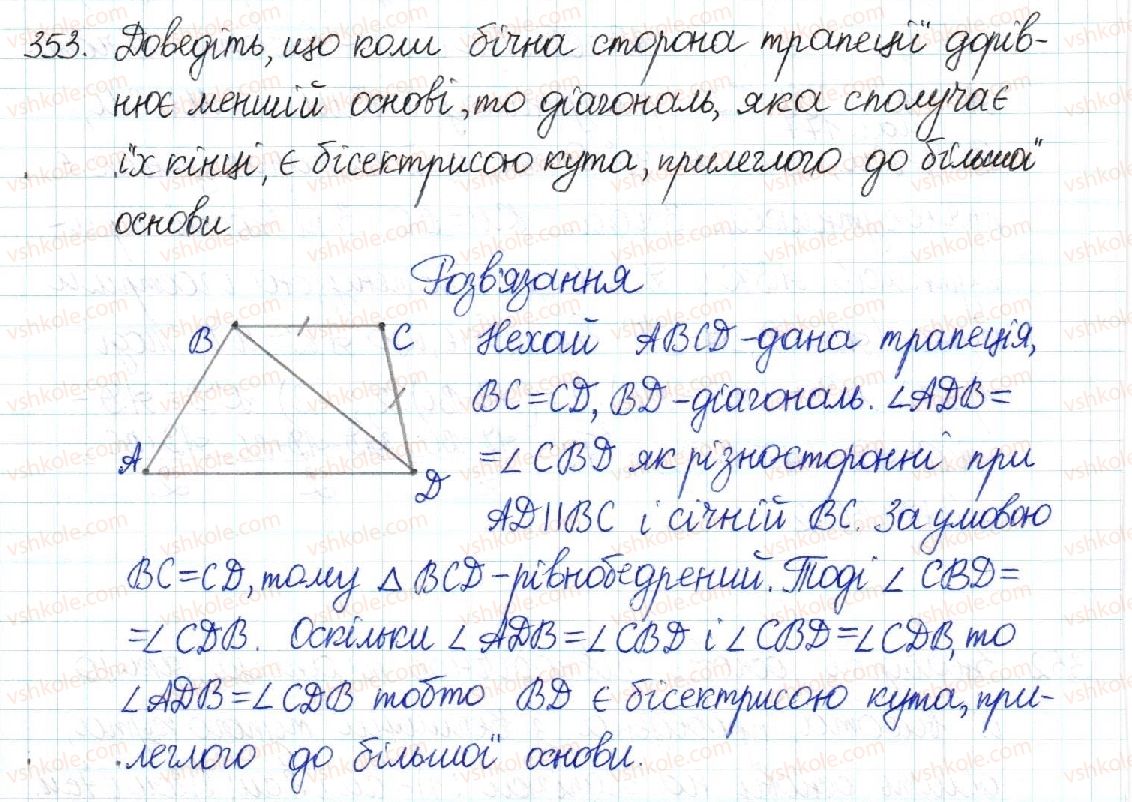 353. Доведіть, що коли бічна сторона трапеції дорів-
нює меншій основі, то діагональ, яка сполучає
їх кінці, є бісектрисою кута, прилеглого до більшої
основи
Розв'язання
B C
A D
Нехай ABCD - дана трапеція,
BC=CD, BD - діагональ. ∠ADB=
=∠CBD як різносторонні при
AD||BC і січній BC. За умовою
BC=CD, тому △BCD - рівнобедрений. Тоді ∠CBD=
=∠CDB. Оскільки ∠ADB=∠CBD і ∠CBD=∠CDB, то
∠ADB=∠CDB тобто BD є бісектрисою кута, при-
леглого до більшої основи.
vshkole.com